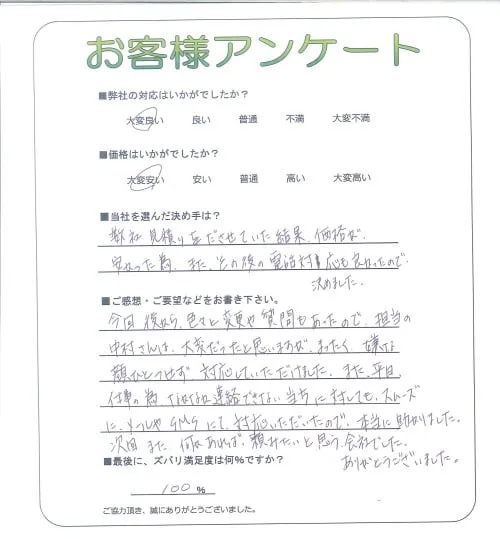 お客様アンケート
■弊社の対応はいかがでしたか？
大変良い 良い 普通 不満 大変不満
■価格はいかがでしたか？
大変安い 安い 普通 高い 大変高い
■当社を選んだ決め手は？
数社 見積りを ださせていた結果、価格が、
安かった為、また、その後の電話対応も良かったので、
決めました。
■ご感想・ご要望などをお書き下さい。
今回 後から、色々と変更や質問もあったので、担当の
中村さんは、大変だったと思いますが、まったく、嫌な
顔ひとつせず 対応していただけました。また、平日、
仕事の為 なかなか連絡できない当方に対しても、スムーズ
に、メールやSMSにて、対応いただいたので、本当に助かりました。
次回また 何かあれば、頼みたいと思う、会社でした。
ありがとうございました。
■最後に、ズバリ満足度は何％ですか？
100 ％
ご協力頂き、誠にありがとうございました。